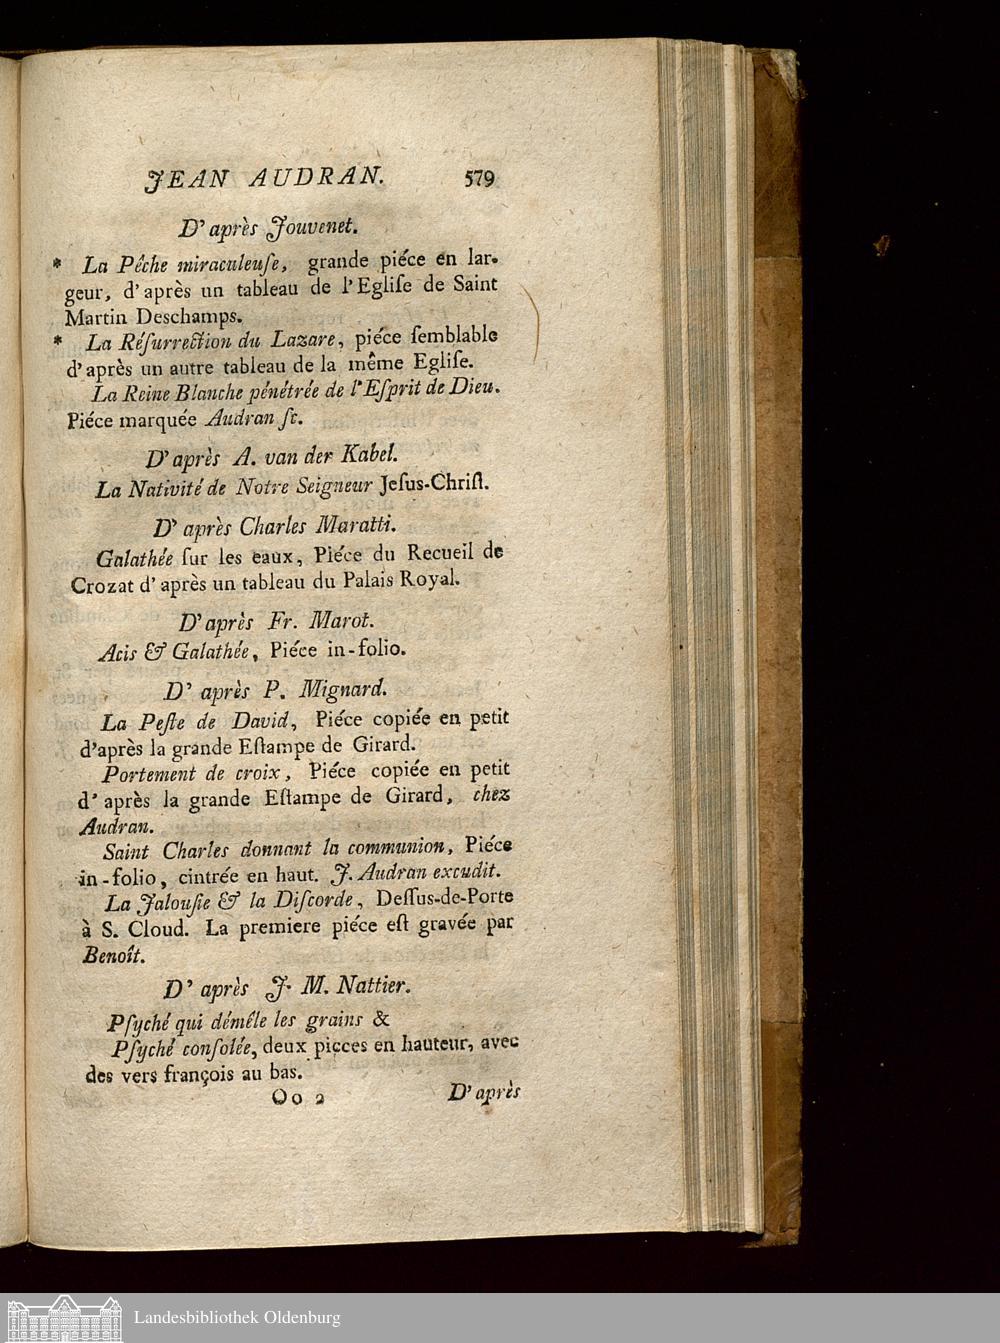 JEAN AUDRAN. 579
D' après Jouvenet.
* La Pêche miraculeuſe, grande piéce en lar-
geur, d'après un tableau de l'Egliſe de Saint
Martin Deschamps.
* La Réſurrection du Lazare, piéce ſemblable
d'après un autre tableau de la même Egliſe.
La Reine Blanche pénétrée de l'Eſprit de Dieu.
Piéce marquée Audran ſc.
D' après A. van der Kabel.
La Nativité de Notre Seigneur Jeſus-Chriſt.
D' après Charles Maratti.
Galathée ſur les eaux, Piéce du Recueil de
Crozat d'après un tableau du Palais Royal.
D' après Fr. Marot.
Acis & Galathée, Piéce in-folio.
D' après P. Mignard.
La Peſte de David, Piéce copiée en petit
d'après la grande Eſtampe de Girard.
Portement de croix, Piéce copiée en petit
d'après la grande Eſtampe de Girard, chez
Audran.
Saint Charles donnant la communion, Piéce
in-folio, cintrée en haut. J. Audran excudit.
La Jalouſie & la Diſcorde, Deſſus-de-Porte
à S. Cloud. La premiere piéce eſt gravée par
Benoît.
D' après J. M. Nattier.
Pſyché qui démêle les grains &
Pſyché conſolée, deux pieces en hauteur, avec
des vers françois au bas.
Oo 2 D' après
Landesbibliothek Oldenburg